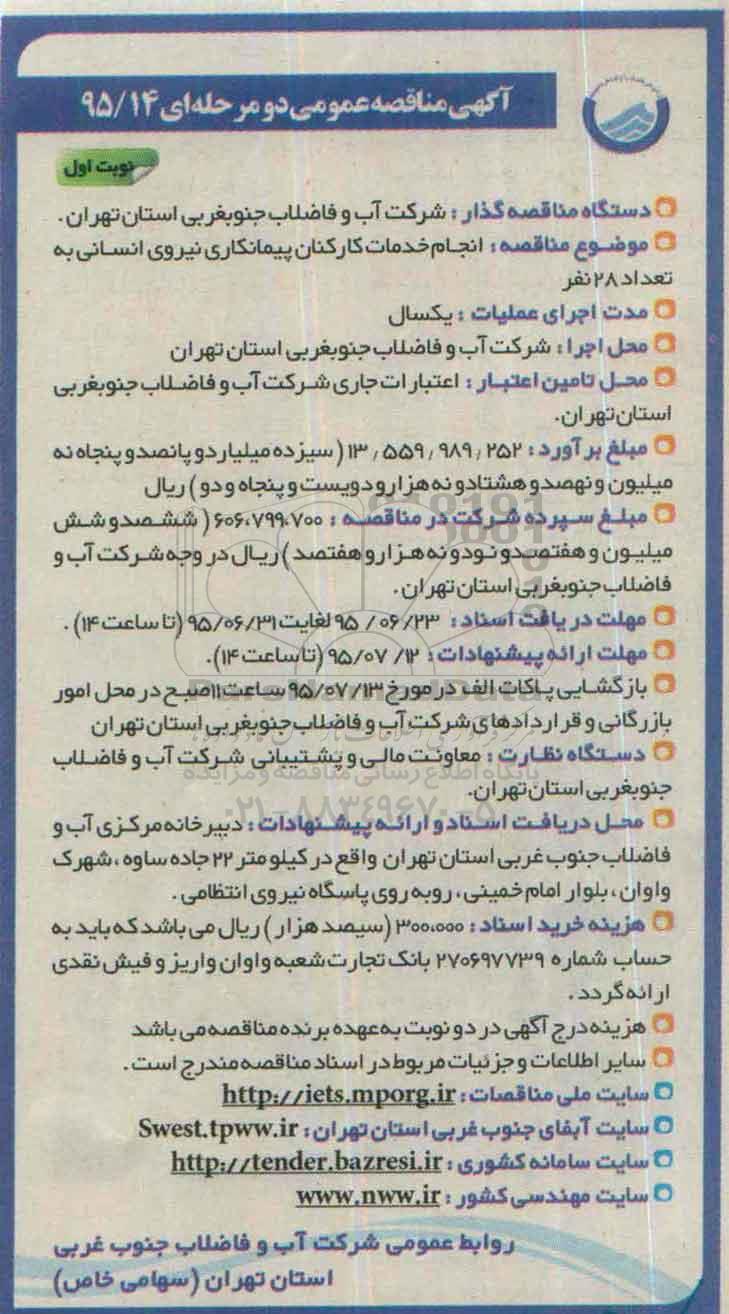 آگهی مناقصه عمومی دو مرحله‌ای ۹۵/۱۴
نوبت اول
دستگاه مناقصه گذار : شرکت آب و فاضلاب جنوبغربی استان تهران .
موضوع مناقصه : انجام خدمات کارکنان پیمانکاری نیروی انسانی به
تعداد ۲۸ نفر
مدت اجرای عملیات : یکسال
محل اجرا : شرکت آب و فاضلاب جنوبغربی استان تهران
محل تامین اعتبار : اعتبارات جاری شرکت آب و فاضلاب جنوبغربی
استان تهران.
مبلغ برآورد : ۱۳٫۵۵۹٫۹۸۹٫۲۵۲ ( سیزده میلیارد و پانصد و پنجاه نه
میلیون و نهصد و هشتاد و نه هزار و دویست و پنجاه و دو ) ریال
مبلغ سپرده شرکت در مناقصه : ۶۰۶،۷۹۹،۷۰۰ ( ششصد و شش
میلیون و هفتصد و نود و نه هزار و هفتصد ) ریال در وجه شرکت آب و
فاضلاب جنوبغربی استان تهران .
مهلت دریافت اسناد : ۹۵/۰۶/۲۳ لغایت ۹۵/۰۶/۳۱ (تا ساعت ۱۴) .
مهلت ارائه پیشنهادات : ۹۵/۰۷/۱۲ (تا ساعت ۱۴).
بازگشایی پاکات الف در مورخ ۹۵/۰۷/۱۳ ساعت ۱۱ صبح در محل امور
بازرگانی و قراردادهای شرکت آب و فاضلاب جنوبغربی استان تهران
دستگاه نظارت : معاونت مالی و پشتیبانی شرکت آب و فاضلاب
جنوبغربی استان تهران.
پایگاه اطلاع رسانی مناقصه و مزایده
۰۲۱-۸۸۳۴۹۶۷۰-۵
محل دریافت اسناد و ارائه پیشنهادات : دبیرخانه مرکزی آب و
فاضلاب جنوب غربی استان تهران واقع در کیلومتر ۲۲ جاده ساوه ، شهرک
واوان ، بلوار امام خمینی ، روبه روی پاسگاه نیروی انتظامی .
هزینه خرید اسناد : ۳۰۰،۰۰۰ (سیصد هزار ) ریال می باشد که باید به
حساب شماره ۲۷۰۶۹۷۷۳۹ بانک تجارت شعبه واوان واریز و فیش نقدی
ارائه گردد .
هزینه درج آگهی در دو نوبت به عهده برنده مناقصه می باشد
سایر اطلاعات و جزئیات مربوط در اسناد مناقصه مندرج است .
سایت ملی مناقصات : http://iets.mporg.ir
سایت آبفای جنوب غربی استان تهران : Swest.tpww.ir
سایت سامانه کشوری : http://tender.bazresi.ir
سایت مهندسی کشور : www.nww.ir
روابط عمومی شرکت آب و فاضلاب جنوب غربی
استان تهران (سهامی خاص)